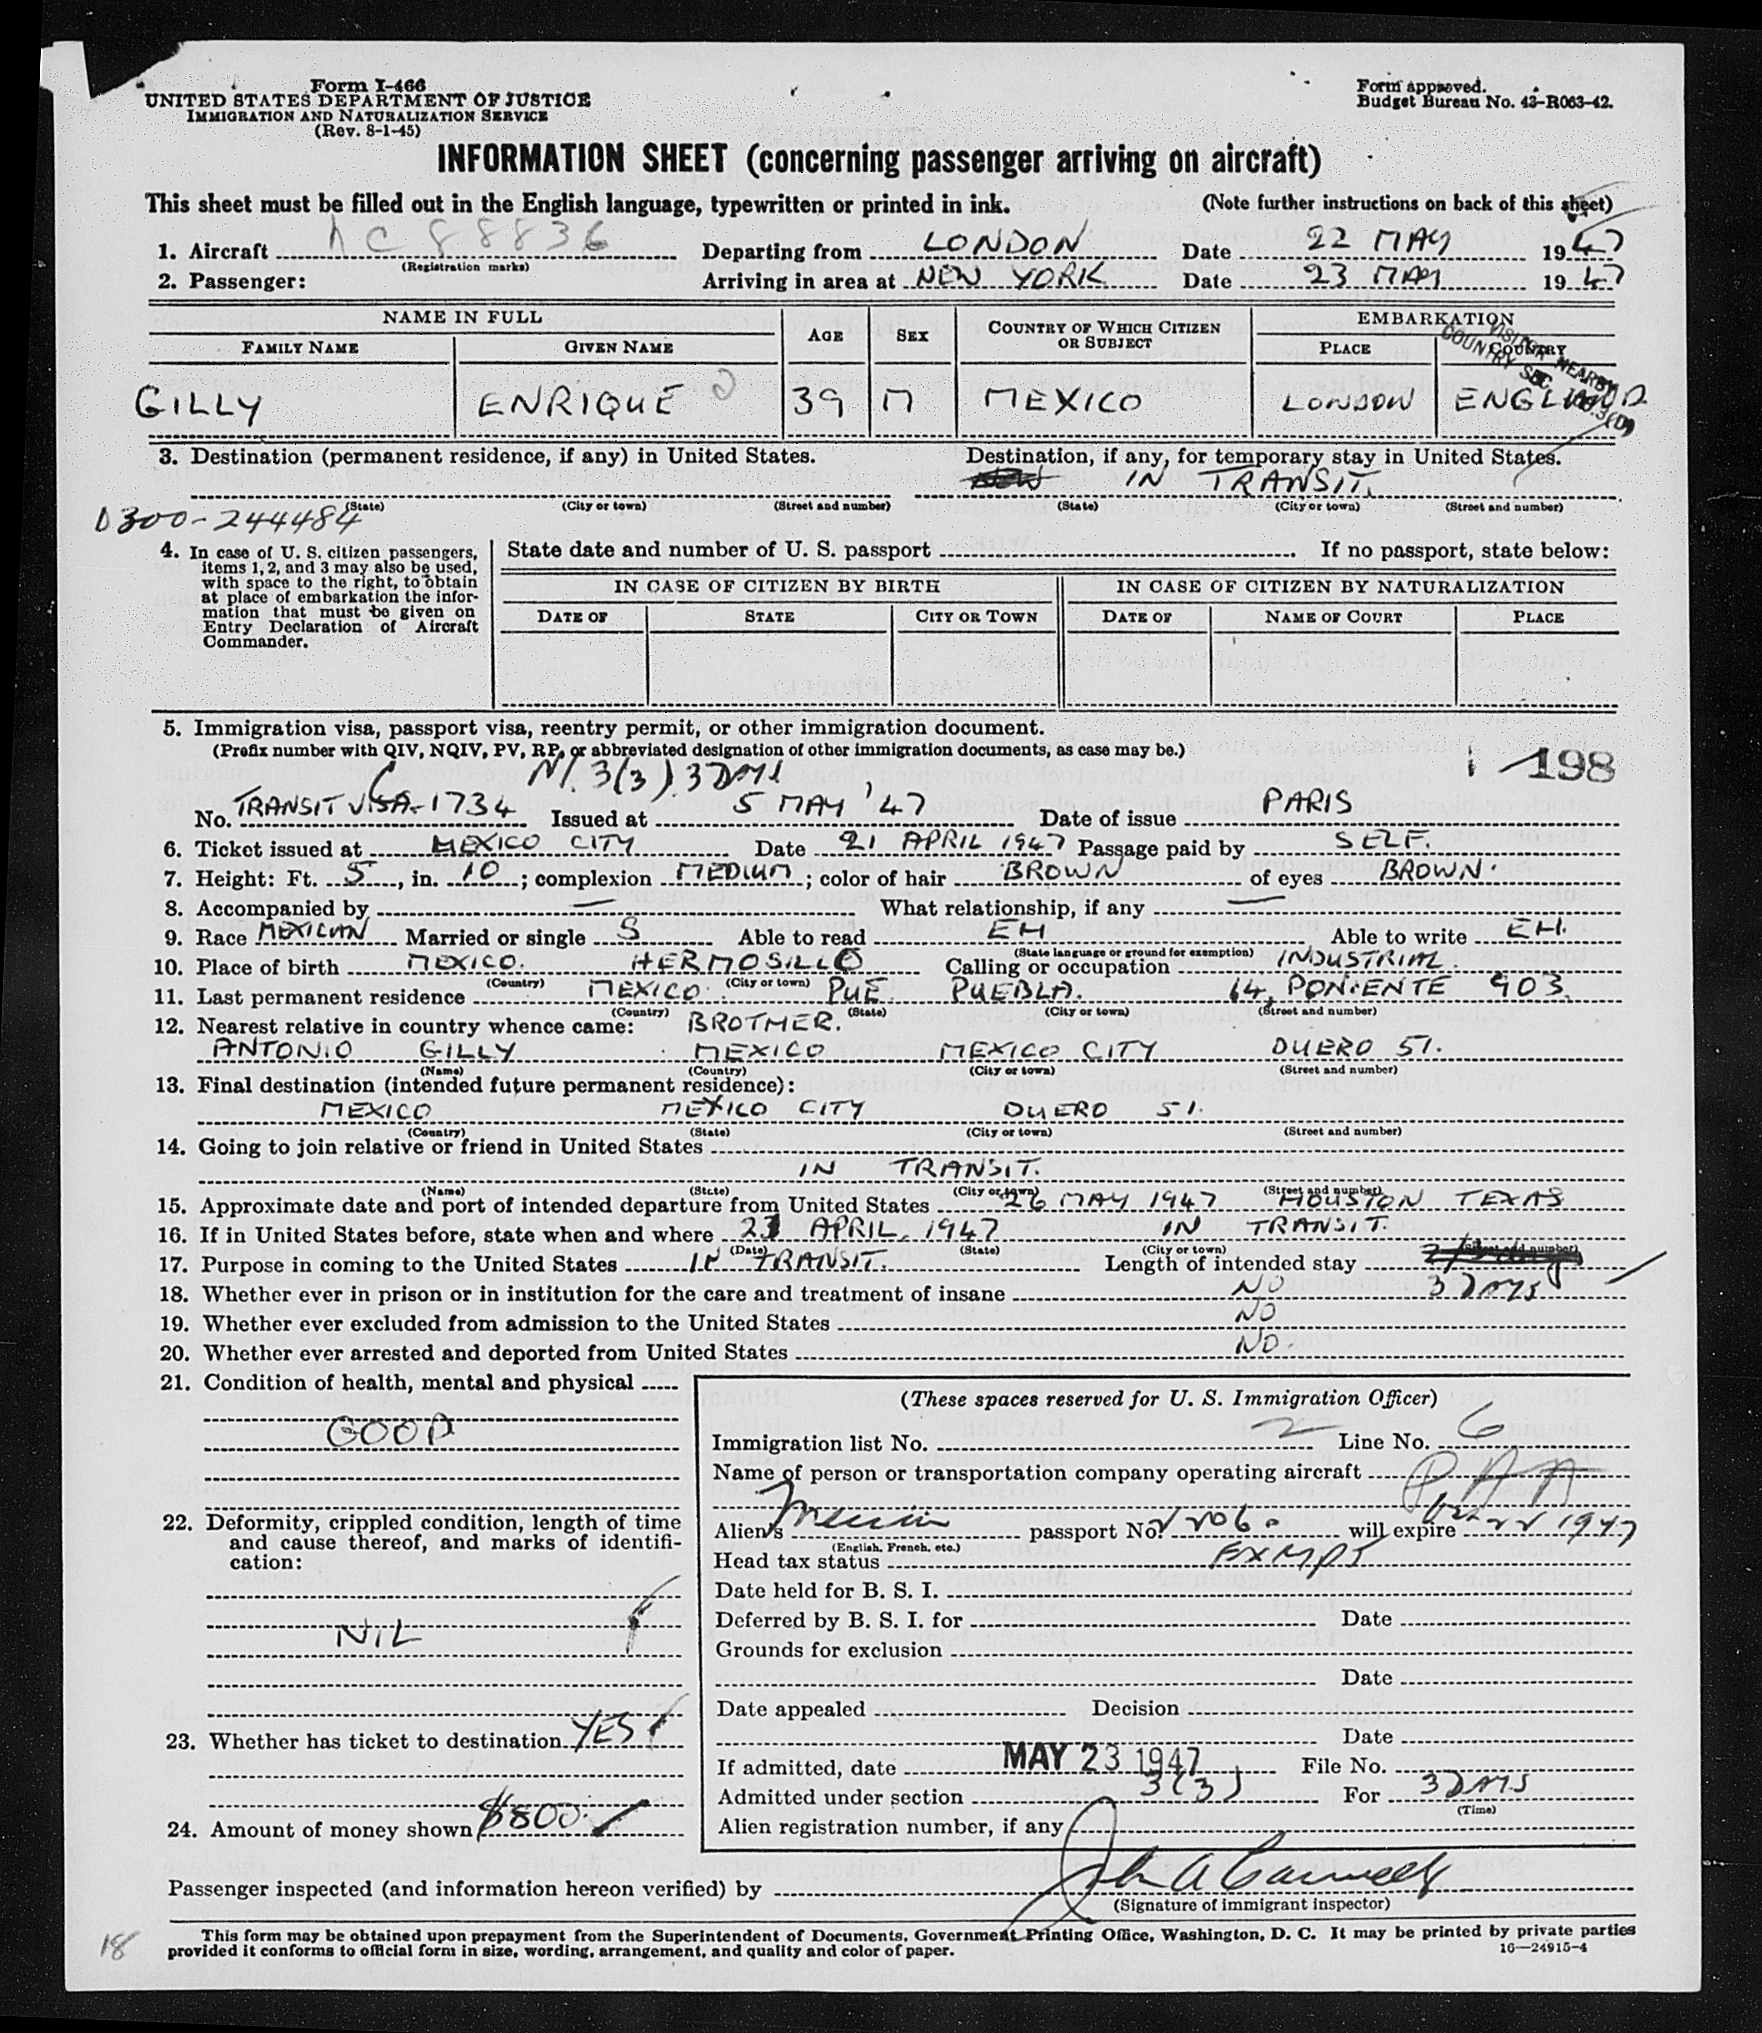 Form I-466
UNITED STATES DEPARTMENT OF JUSTICE
IMMIGRATION AND NATURALIZATION SERVICE
(Rev. 8-1-45)
Form approved.
Budget Bureau No. 43-R063-42.
INFORMATION SHEET (concerning passenger arriving on aircraft)
This sheet must be filled out in the English language, typewritten or printed in ink. (Note further instructions on back of this sheet)
1. Aircraft NC 88836 Departing from LONDON Date 22 MAY 1947
(Registration marks)
2. Passenger: Arriving in area at NEW YORK Date 23 MAY 1947
NAME IN FULL AGE SEX COUNTRY OF WHICH CITIZEN OR SUBJECT EMBARKATION
FAMILY NAME GIVEN NAME PLACE COUNTRY
VISITOR NEARBY
COUNTRY SEC. 176.3(D)
GILLY ENRIQUE 39 M MEXICO LONDON ENGLAND
3. Destination (permanent residence, if any) in United States. Destination, if any, for temporary stay in United States.
IN TRANSIT.
(State) (City or town) (Street and number) (State) (City or town) (Street and number)
0300-244484
4. In case of U. S. citizen passengers, items 1, 2, and 3 may also be used, with space to the right, to obtain at place of embarkation the information that must be given on Entry Declaration of Aircraft Commander.
State date and number of U. S. passport . If no passport, state below:
IN CASE OF CITIZEN BY BIRTH IN CASE OF CITIZEN BY NATURALIZATION
DATE OF STATE CITY OR TOWN DATE OF NAME OF COURT PLACE
5. Immigration visa, passport visa, reentry permit, or other immigration document.
(Prefix number with QIV, NQIV, PV, RP, or abbreviated designation of other immigration documents, as case may be.)
198
3(3) 3 DAYS
No. TRANSIT VISA-1734 Issued at 5 MAY '47 Date of issue PARIS
6. Ticket issued at MEXICO CITY Date 21 APRIL 1947 Passage paid by SELF.
7. Height: Ft. 5, in. 10; complexion MEDIUM; color of hair BROWN of eyes BROWN.
8. Accompanied by — What relationship, if any —
9. Race MEXICAN Married or single S Able to read EH Able to write EH.
(State language or ground for exemption)
10. Place of birth MEXICO. HERMOSILLO Calling or occupation INDUSTRIAL.
(Country) (City or town)
11. Last permanent residence MEXICO. PUE. PUEBLA. 14, PONIENTE 903.
(Country) (State) (City or town) (Street and number)
12. Nearest relative in country whence came: BROTHER.
ANTONIO GILLY MEXICO MEXICO CITY DUERO 51.
(Name) (Country) (City or town) (Street and number)
13. Final destination (intended future permanent residence):
MEXICO MEXICO CITY DUERO 51.
(Country) (State) (City or town) (Street and number)
14. Going to join relative or friend in United States
IN TRANSIT.
(Name) (State) (City or town) (Street and number)
15. Approximate date and port of intended departure from United States 26 MAY 1947 HOUSTON TEXAS
16. If in United States before, state when and where 23 APRIL. 1947 IN TRANSIT.
(Date) (State) (City or town) (Street and number)
17. Purpose in coming to the United States IN TRANSIT. Length of intended stay
3 DAYS
18. Whether ever in prison or in institution for the care and treatment of insane NO
19. Whether ever excluded from admission to the United States NO
20. Whether ever arrested and deported from United States NO.
21. Condition of health, mental and physical
GOOD
22. Deformity, crippled condition, length of time and cause thereof, and marks of identification:
NIL
23. Whether has ticket to destination YES
24. Amount of money shown $800.
(These spaces reserved for U. S. Immigration Officer)
Immigration list No. 2 Line No. 6
Name of person or transportation company operating aircraft P.A.A
Alien's passport No. will expire 1947
(English, French, etc.)
Head tax status EXMPT
Date held for B. S. I.
Deferred by B. S. I. for Date
Grounds for exclusion
Date
Date appealed Decision
Date
If admitted, date MAY 23 1947 File No.
Admitted under section 3(3) For 3 DAYS
(Time)
Alien registration number, if any
Passenger inspected (and information hereon verified) by John A
(Signature of immigrant inspector)
18
This form may be obtained upon prepayment from the Superintendent of Documents, Government Printing Office, Washington, D. C. It may be printed by private parties
provided it conforms to official form in size, wording, arrangement, and quality and color of paper.
16—24915-4